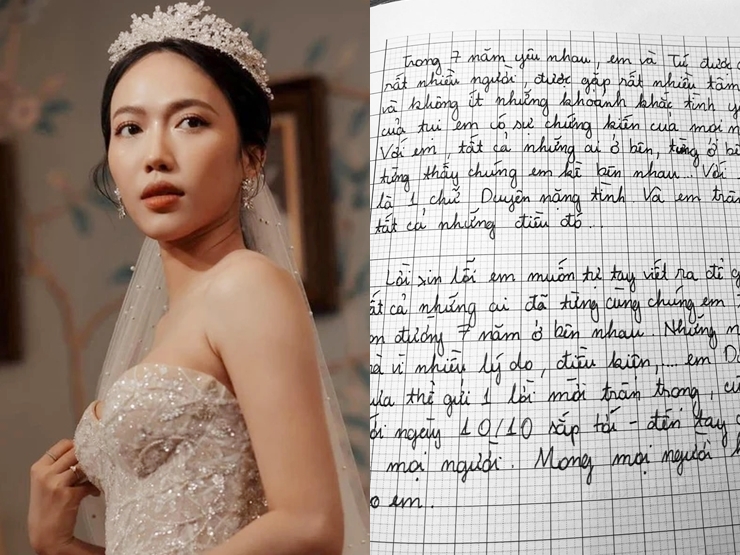 trong 7 năm yêu nhau, em và Tú được
rất nhiều người, được gặp rất nhiều tâm
và không ít những khoảnh khắc tình
của tui em có sự chứng kiến của mọi
Với em, tất cả những ai ở bên, từng ở
từng thấy chúng em kề bên nhau.. Với
là 1 chữ Duyên nặng tình. Và em trân
tất cả những điều đó...
Lời xin lỗi em muốn tự tay viết ra để
những ai đã từng cùng chúng em
đường 7 năm ở bên nhau. Những
vì nhiều lý do, điều kiện,... em
thể gửi 1 lời mời trân trọng,
ngày 10/10 sắp tới - đến tay
mọi người. Mong mọi người
em.